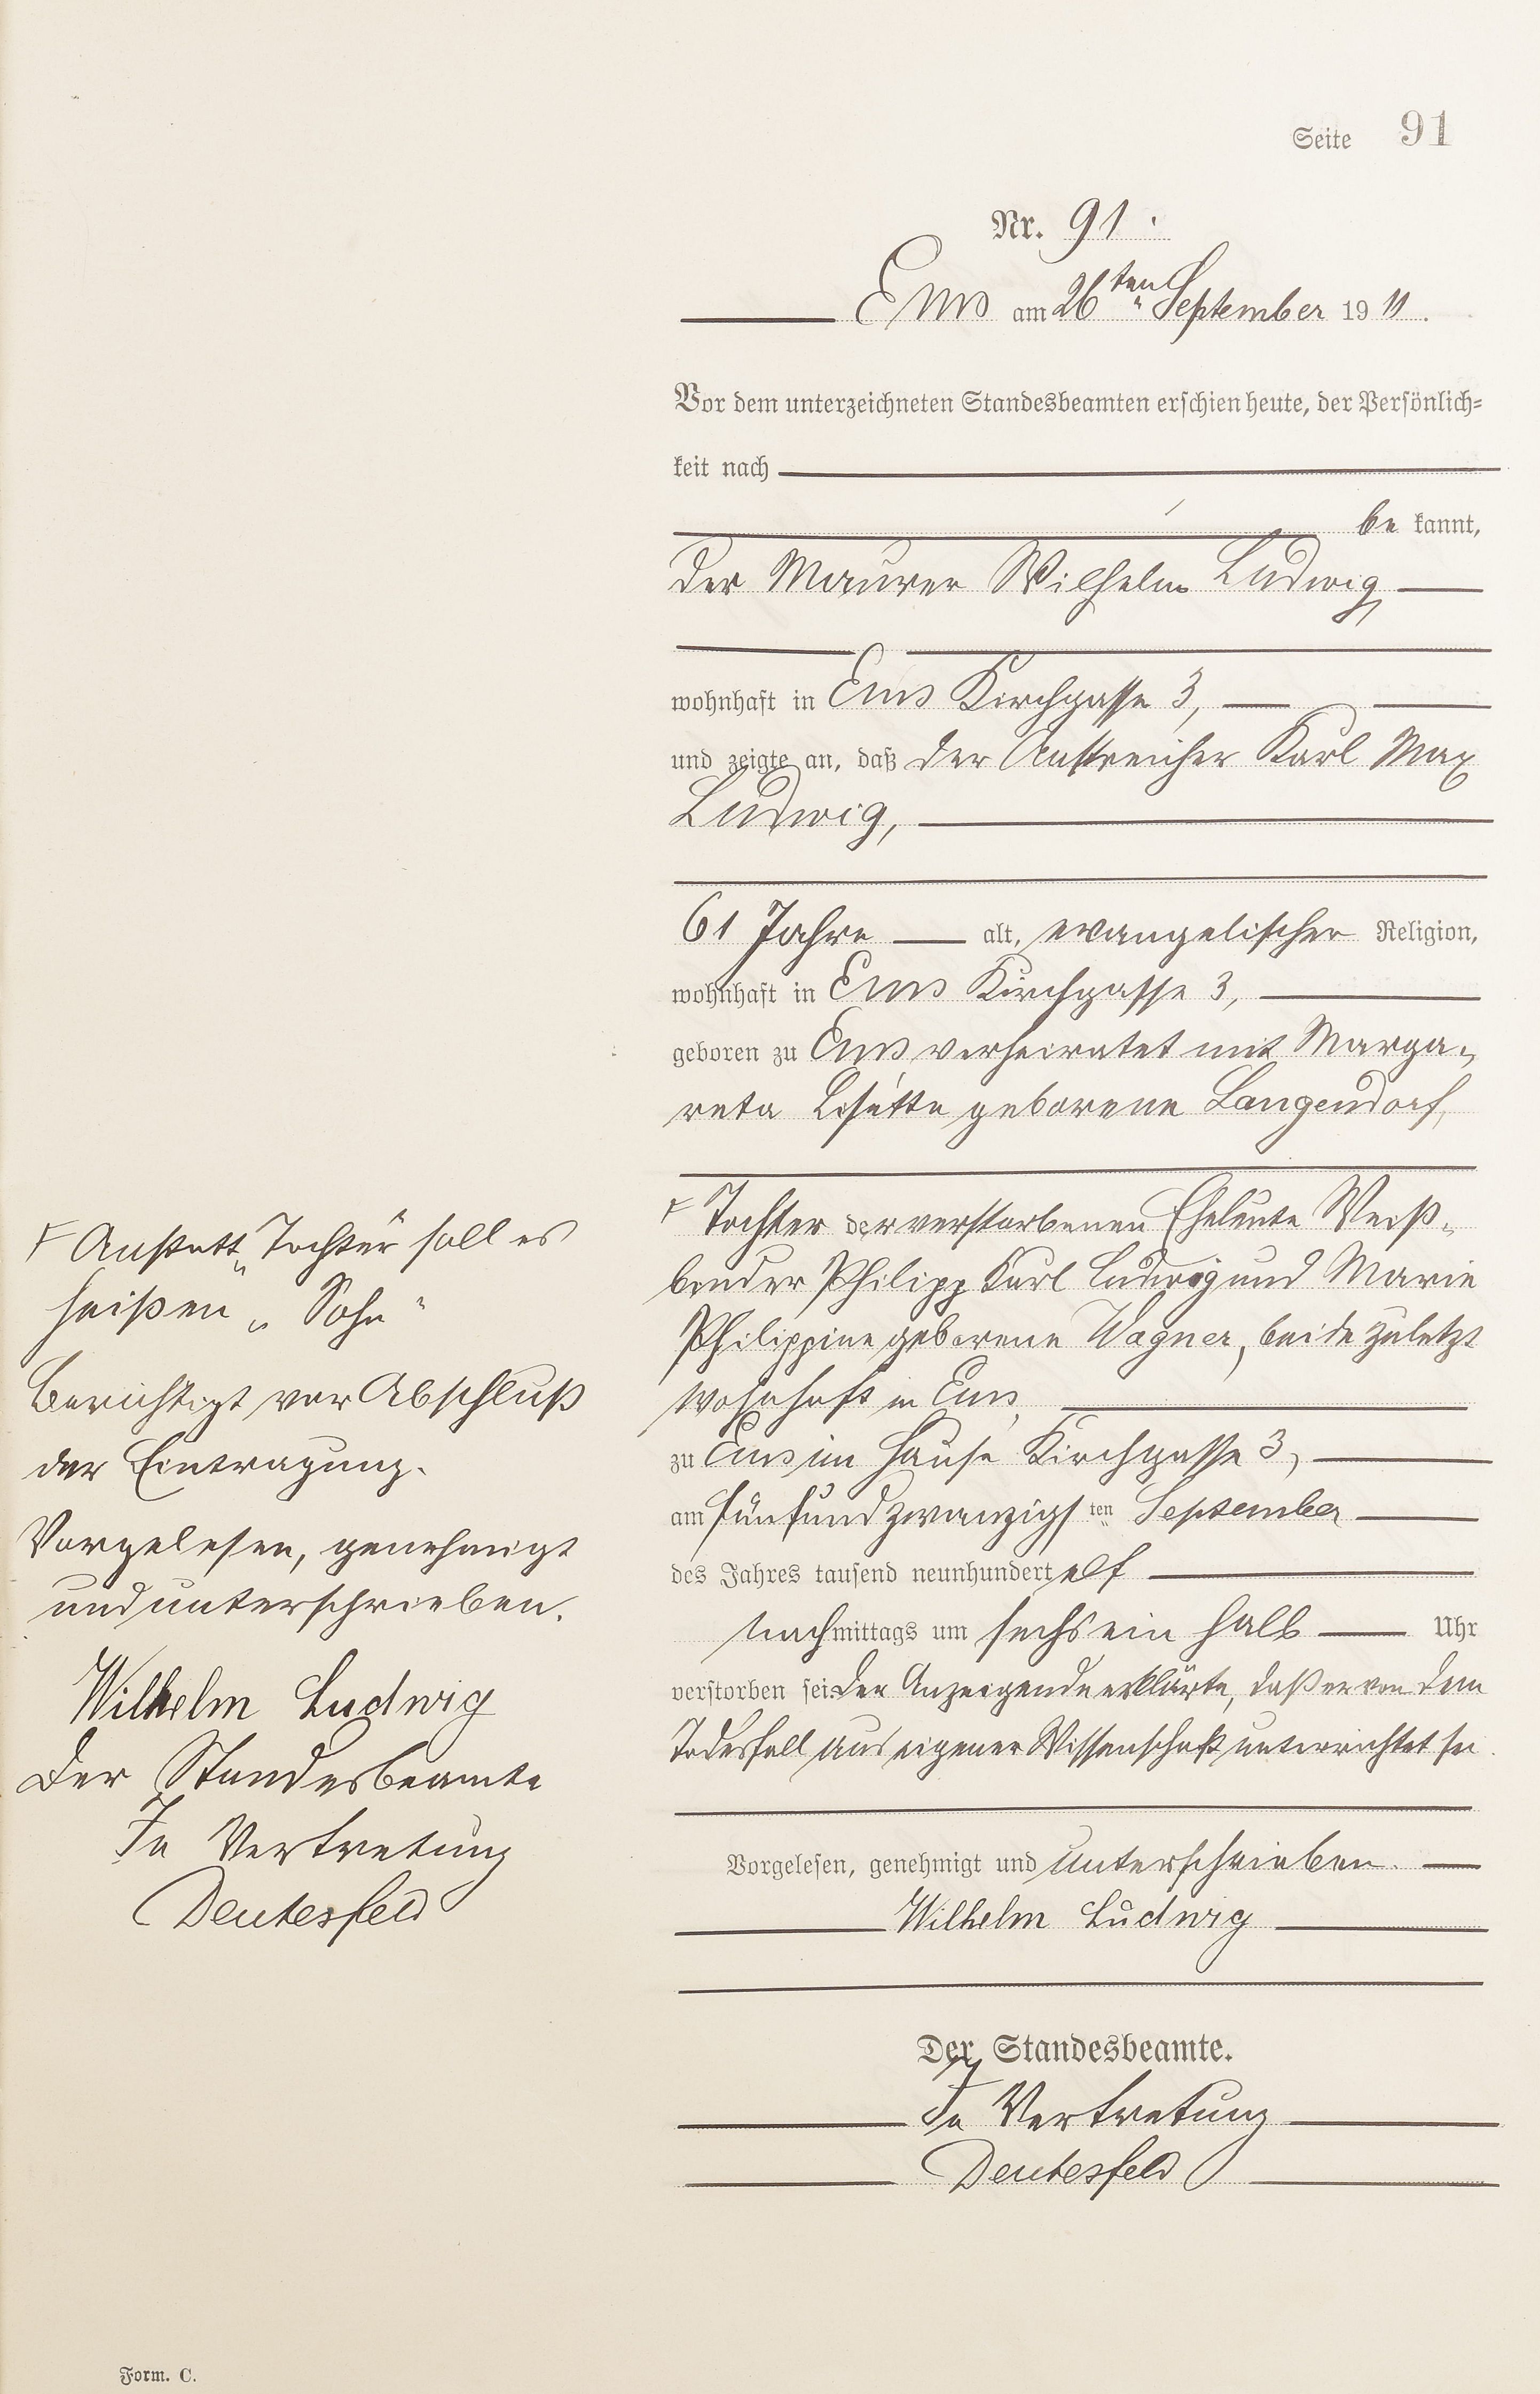 Seite 91
Nr. 91.
Ems am 26ten September 1911.
Vor dem unterzeichneten Standesbeamten erschien heute, der Persönlich=
keit nach
be kannt,
der Maurer Wilhelm Ludwig,
wohnhaft in Ems Kirchgasse 3,
und zeigte an, daß der Anstreicher Karl Max
Ludwig,
61 Jahre alt, evangelischer Religion,
wohnhaft in Ems Kirchgasse 3,
geboren zu Ems verheiratet mit Marga-
reta Lisette geborene Langendorf,
Tochter der verstorbenen Eheleute Weiß-
bender Philipp Karl Ludwig und Marie
Philippine geborene Wagner, beide zuletzt
wohnhaft in Ems,
zu Ems im Hause Kirchgasse 3,
am fünfundzwanzigsten September
des Jahres tausend neunhundert elf
nachmittags um sechs ein halb Uhr
verstorben sei. Der Anzeigende erklärte, daß er von dem
Todesfall aus eigener Wissenschaft unterrichtet sei.
Vorgelesen, genehmigt und unterschrieben.
Wilhelm Ludwig
Der Standesbeamte.
In Vertretung
Deutesfeld
Anstatt „Tochter" soll es
heißen „Sohn"
Berichtigt vor Abschluß
der Eintragung.
Vorgelesen, genehmigt
und unterschrieben.
Wilhelm Ludwig
Der Standesbeamte
In Vertretung
Deutesfeld
Form. C.